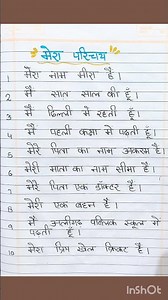 मेरा परिचय
1 मेरा नाम मीरा है।
2 मैं सात साल की हूँ।
3 मैं दिल्ली में रहती हूँ।
4 मैं पहली कक्षा में पढ़ती हूँ।
5 मेरे पिता का नाम अकरम है।
6 मेरी माता का नाम सीमा है।
7 मेरे पिता एक डॉक्टर है।
8 मेरी एक बहन है।
9 मैं अलीगढ़ पब्लिक स्कूल में
पढ़ती हूँ।
10 मेरा प्रिय खेल क्रिकेट है।
InShOt